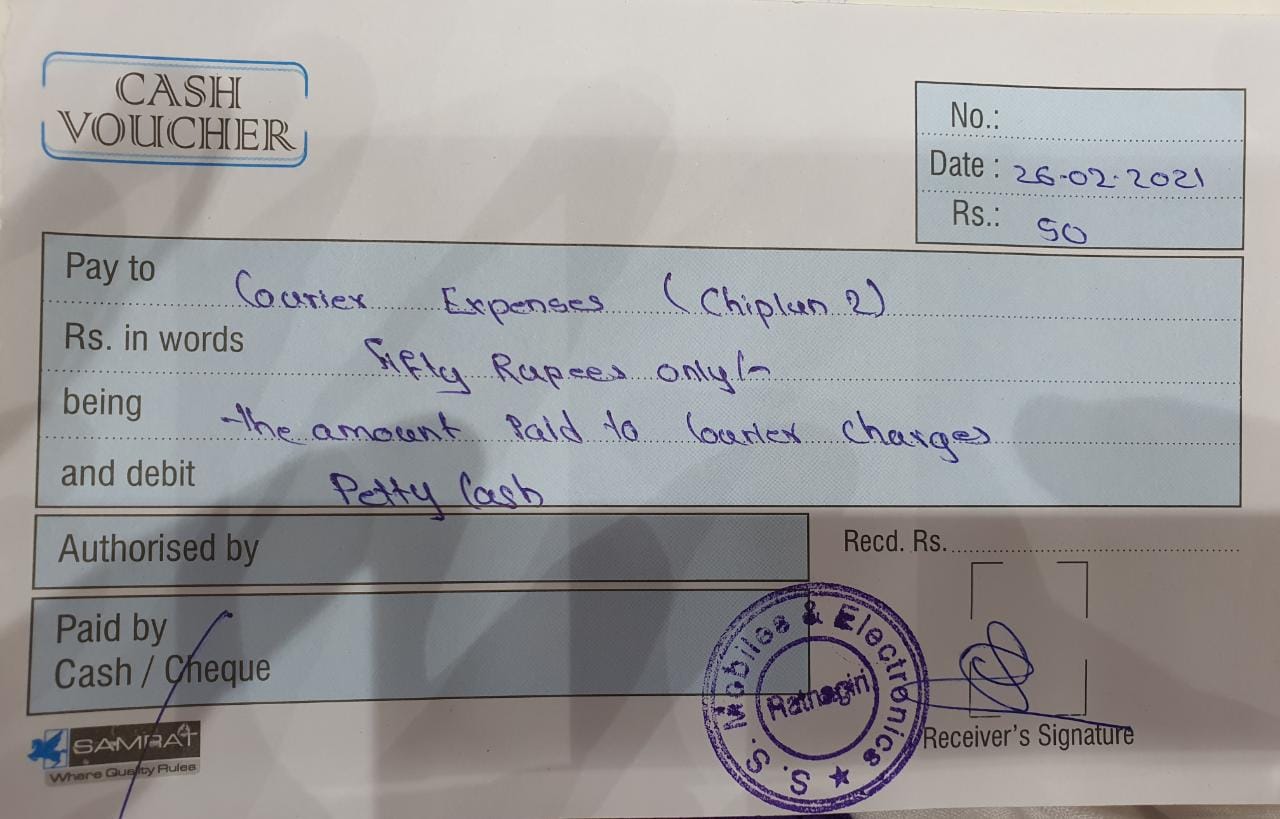 CASH
VOUCHER
No.:
Date : 26-02-2021
Rs.: 50
Pay to Courier Expenses (Chiplun 2)
Rs. in words fifty Rupees only/-
being the amount Paid to Courier Charges
and debit Petty Cash
Authorised by
Recd. Rs.
Paid by
Cash / Cheque
S. S. Mobiles & Electronics ★
Ratnagiri
Receiver's Signature
SAMRAT
Where Quality Rules